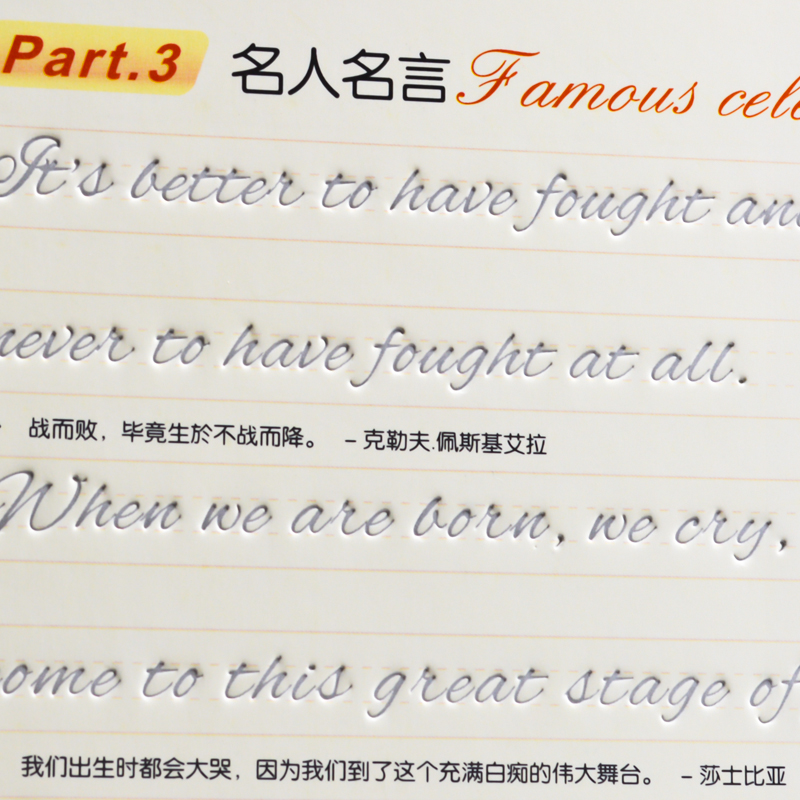 Part.3 名人名言 Famous
It's better to have fought
never to have fought at all.
战而败，毕竟生於不战而降。 –克勒夫.佩斯基艾拉
When we are born, we cry,
to this great stage of
我们出生时都会大哭，因为我们到了这个充满白痴的伟大舞台。 –莎士比亚